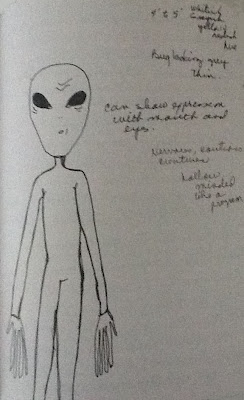 4' to 5' whitish
grayish
yellow
reddish
hue
Bug looking grey
thin.
can show expression
with mouth and
eyes.
nervous, cautious
hollow
minded
like a
program